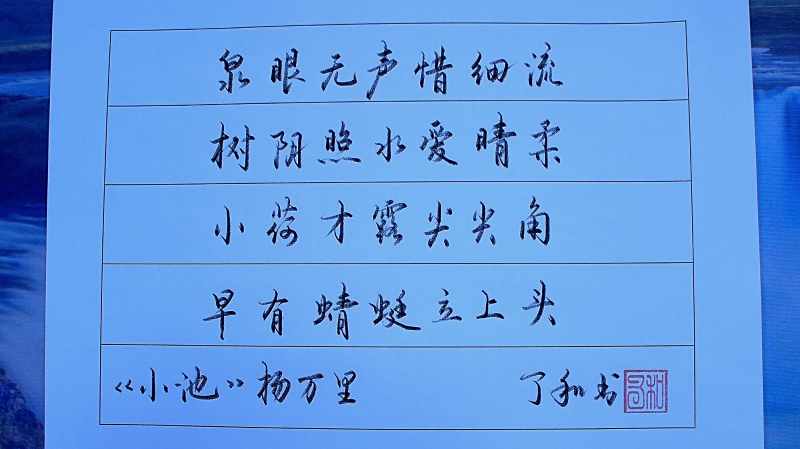 泉眼无声惜细流
树阴照水爱晴柔
小荷才露尖尖角
早有蜻蜓立上头
《小池》杨万里 了和书